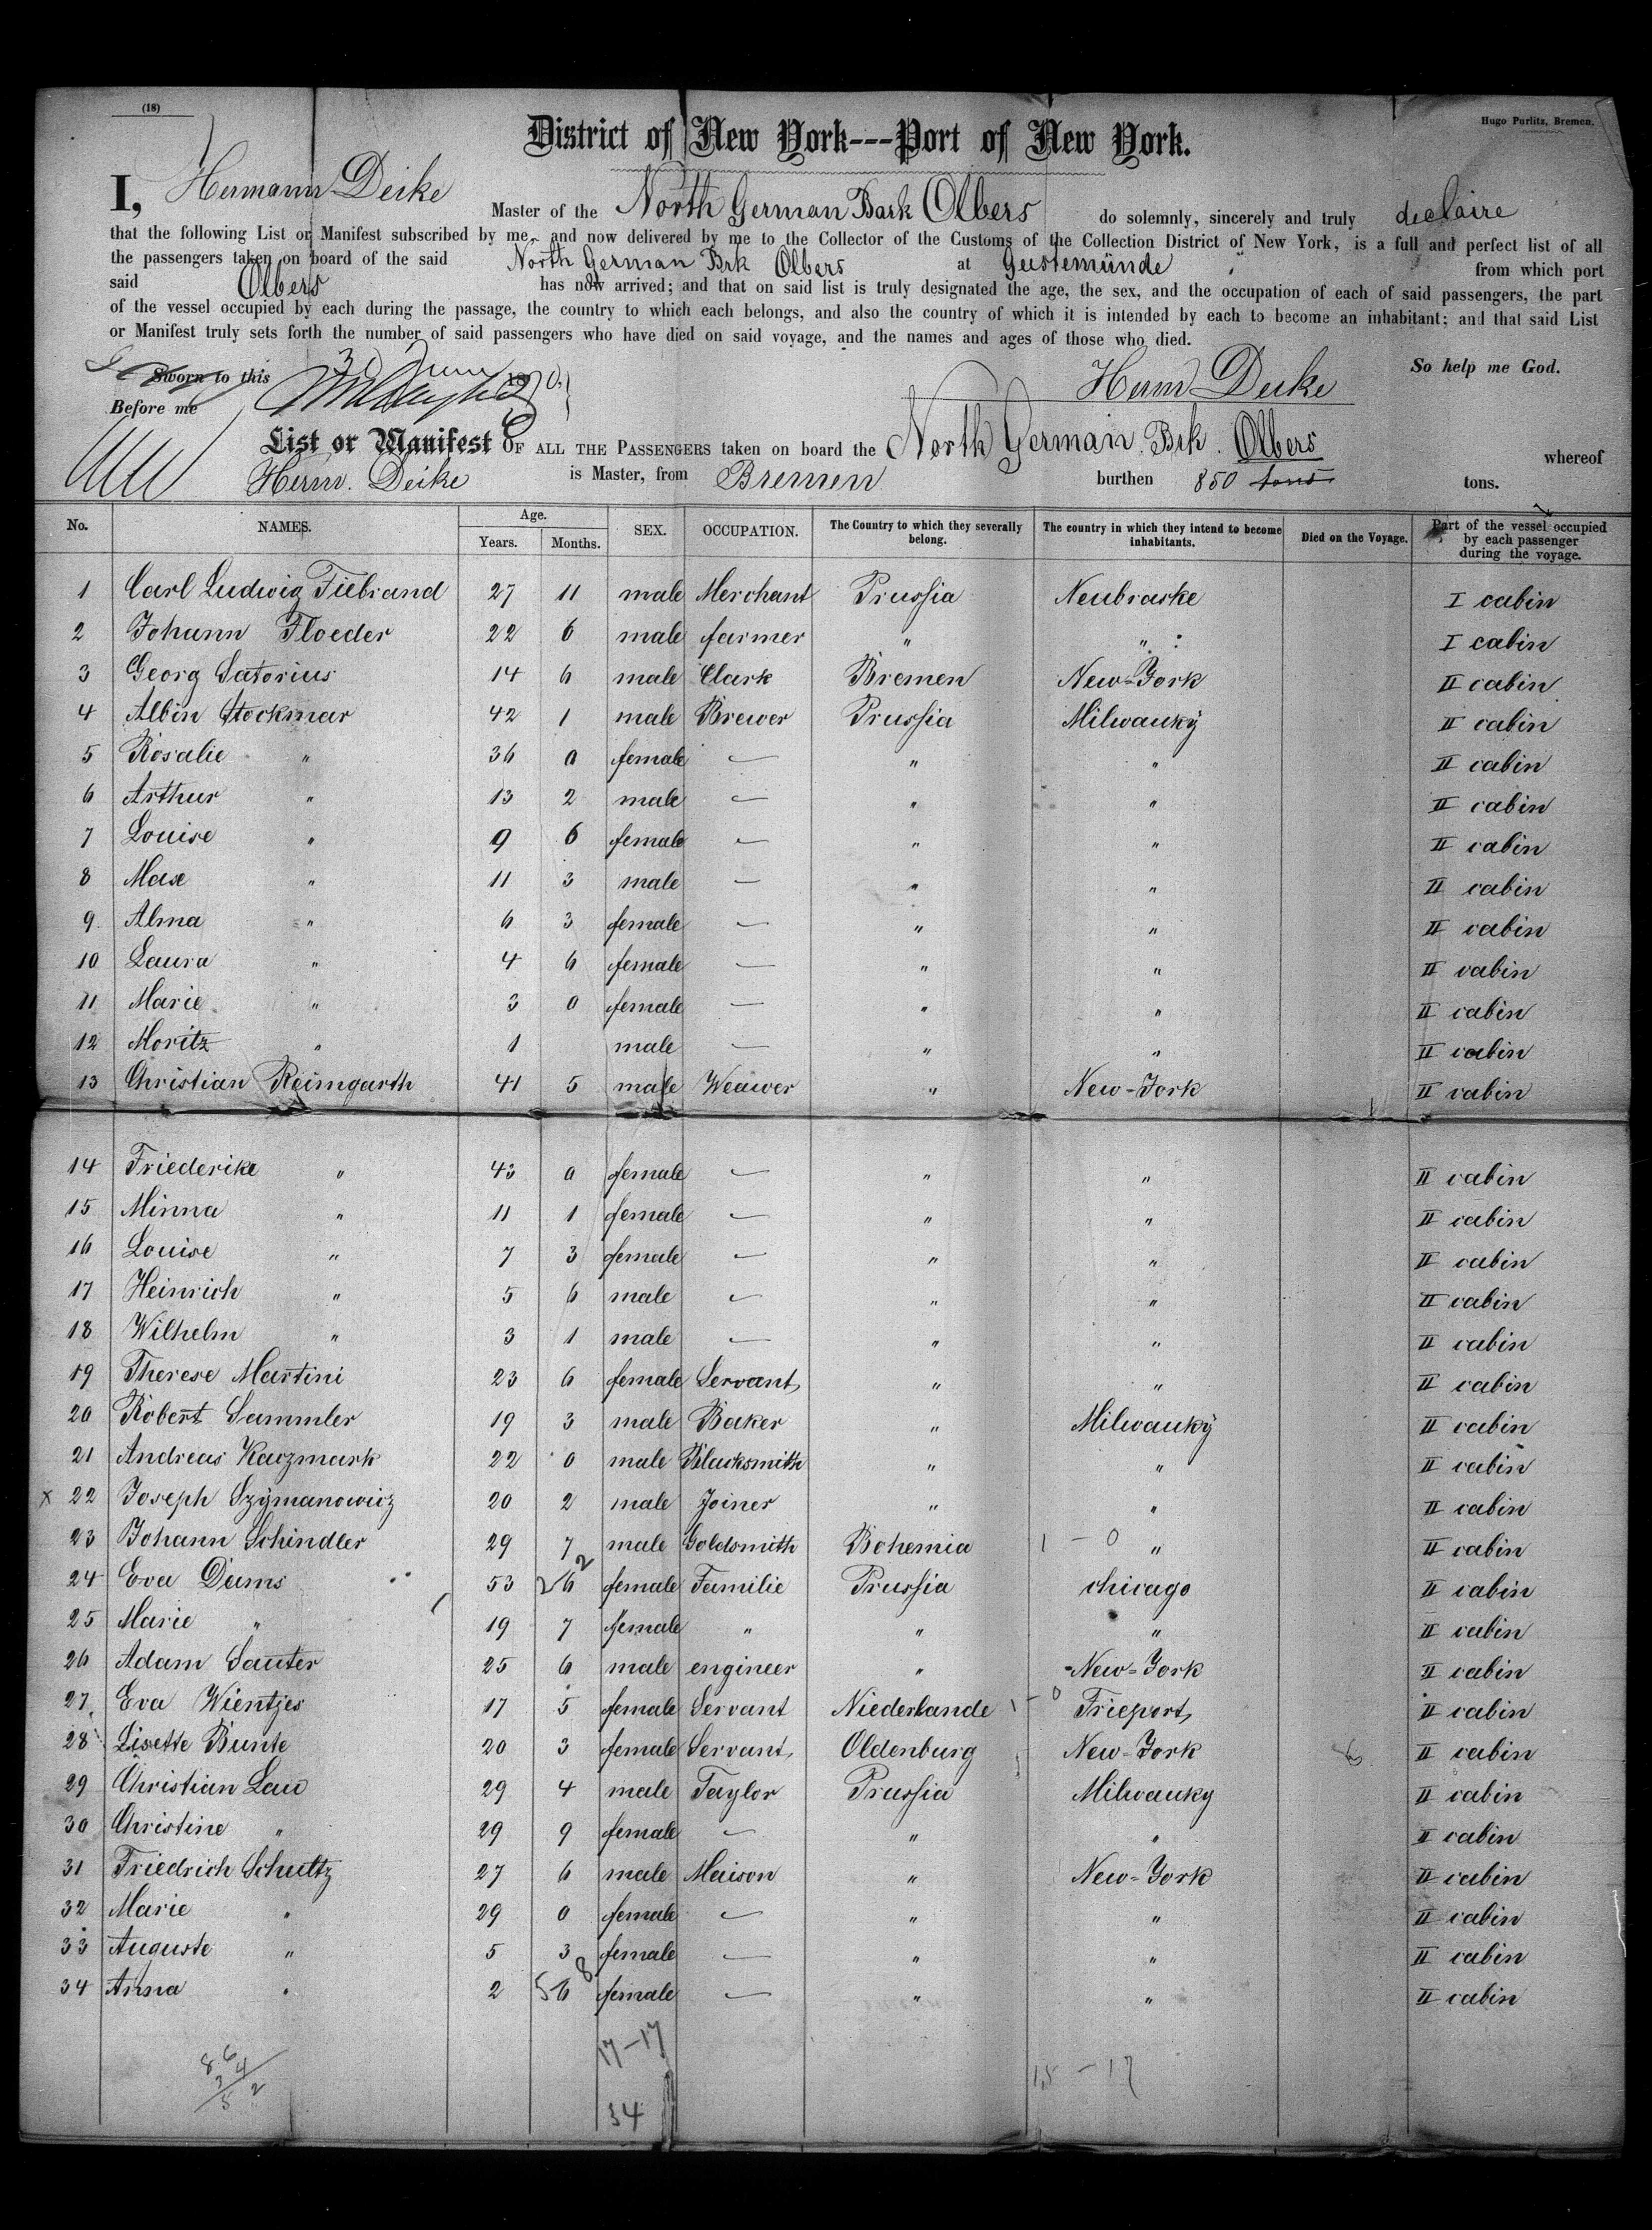 (18)
Hugo Purlitz, Bremen.
District of New York---Port of New York.
I, Hermann Deike Master of the North German Bark Olbers do solemnly, sincerely and truly declaire
that the following List or Manifest subscribed by me, and now delivered by me to the Collector of the Customs of the Collection District of New York, is a full and perfect list of all
the passengers taken on board of the said North German Brk Olbers at Geestemünde from which port
said Olbers has now arrived; and that on said list is truly designated the age, the sex, and the occupation of each of said passengers, the part
of the vessel occupied by each during the passage, the country to which each belongs, and also the country of which it is intended by each to become an inhabitant; and that said List
or Manifest truly sets forth the number of said passengers who have died on said voyage, and the names and ages of those who died.
So help me God.
Sworn to this 30 June 1870
Herm Deike
Before me
List or Manifest OF ALL THE PASSENGERS taken on board the North German Brk. Olbers whereof
Herm. Deike is Master, from Bremen burthen 850 tons tons.
No. NAMES. Age. Years. Months. SEX. OCCUPATION. The Country to which they severally belong. The country in which they intend to become inhabitants. Died on the Voyage. Part of the vessel occupied by each passenger during the voyage.
1 Carl Ludwig Fiebrand 27 11 male Merchant Prussia Neubraske I cabin
2 Johann Floeder 22 6 male farmer " " I cabin
3 Georg Satorius 14 6 male Clark Bremen New-York II cabin
4 Albin Stockmar 42 1 male Brewer Prussia Milwauky II cabin
5 Rosalie " 36 0 female — " " II cabin
6 Arthur " 13 2 male — " " II cabin
7 Louise " 9 6 female — " " II cabin
8 Max " 11 3 male — " " II cabin
9. Alma " 6 3 female — " " II cabin
10 Laura " 4 6 female — " " II cabin
11 Marie " 3 0 female — " " II cabin
12 Moritz " 1 male — " " II cabin
13 Christian Reimgarth 41 5 male Weawer " New-York II cabin
14 Friederike " 43 0 female — " " II cabin
15 Minna " 11 1 female — " " II cabin
16 Louise " 7 3 female — " " II cabin
17 Heinrich " 5 6 male — " " II cabin
18 Wilhelm " 3 1 male — " " II cabin
19 Therese Martini 23 6 female Servant " " II cabin
20 Robert Sammler 19 3 male Baker " Milwauky II cabin
21 Andreas Kaczmark 22 0 male Blacksmith " " II cabin
x 22 Joseph Szymanowicz 20 2 male Joiner " " II cabin
23 Johann Schindler 29 7 male Goldsmith Bohemia 1 - 0 " II cabin
24 Eva Dams 53 2 6 2 female Familie Prussia chicago II cabin
25 Marie " 19 7 female " " " II cabin
26 Adam Sauter 25 6 male engineer " New-York II cabin
27. Eva Wientjes 17 5 female Servant Niederlande 1 - 0 Frieport, II cabin
28 Lisette Bunte 20 3 female Servant, Oldenburg New-York II cabin
29 Christian Lau 29 4 male Taylor Prussia Milwauky II cabin
30 Christine " 29 9 female — " " II cabin
31 Friedrich Schultz 27 6 male Maison " New-York II cabin
32 Marie " 29 0 female — " " II cabin
33 Auguste " 5 3 female — " " II cabin
34 Anna " 2 5 6 8 female — " " II cabin
17-17
15 - 17
34